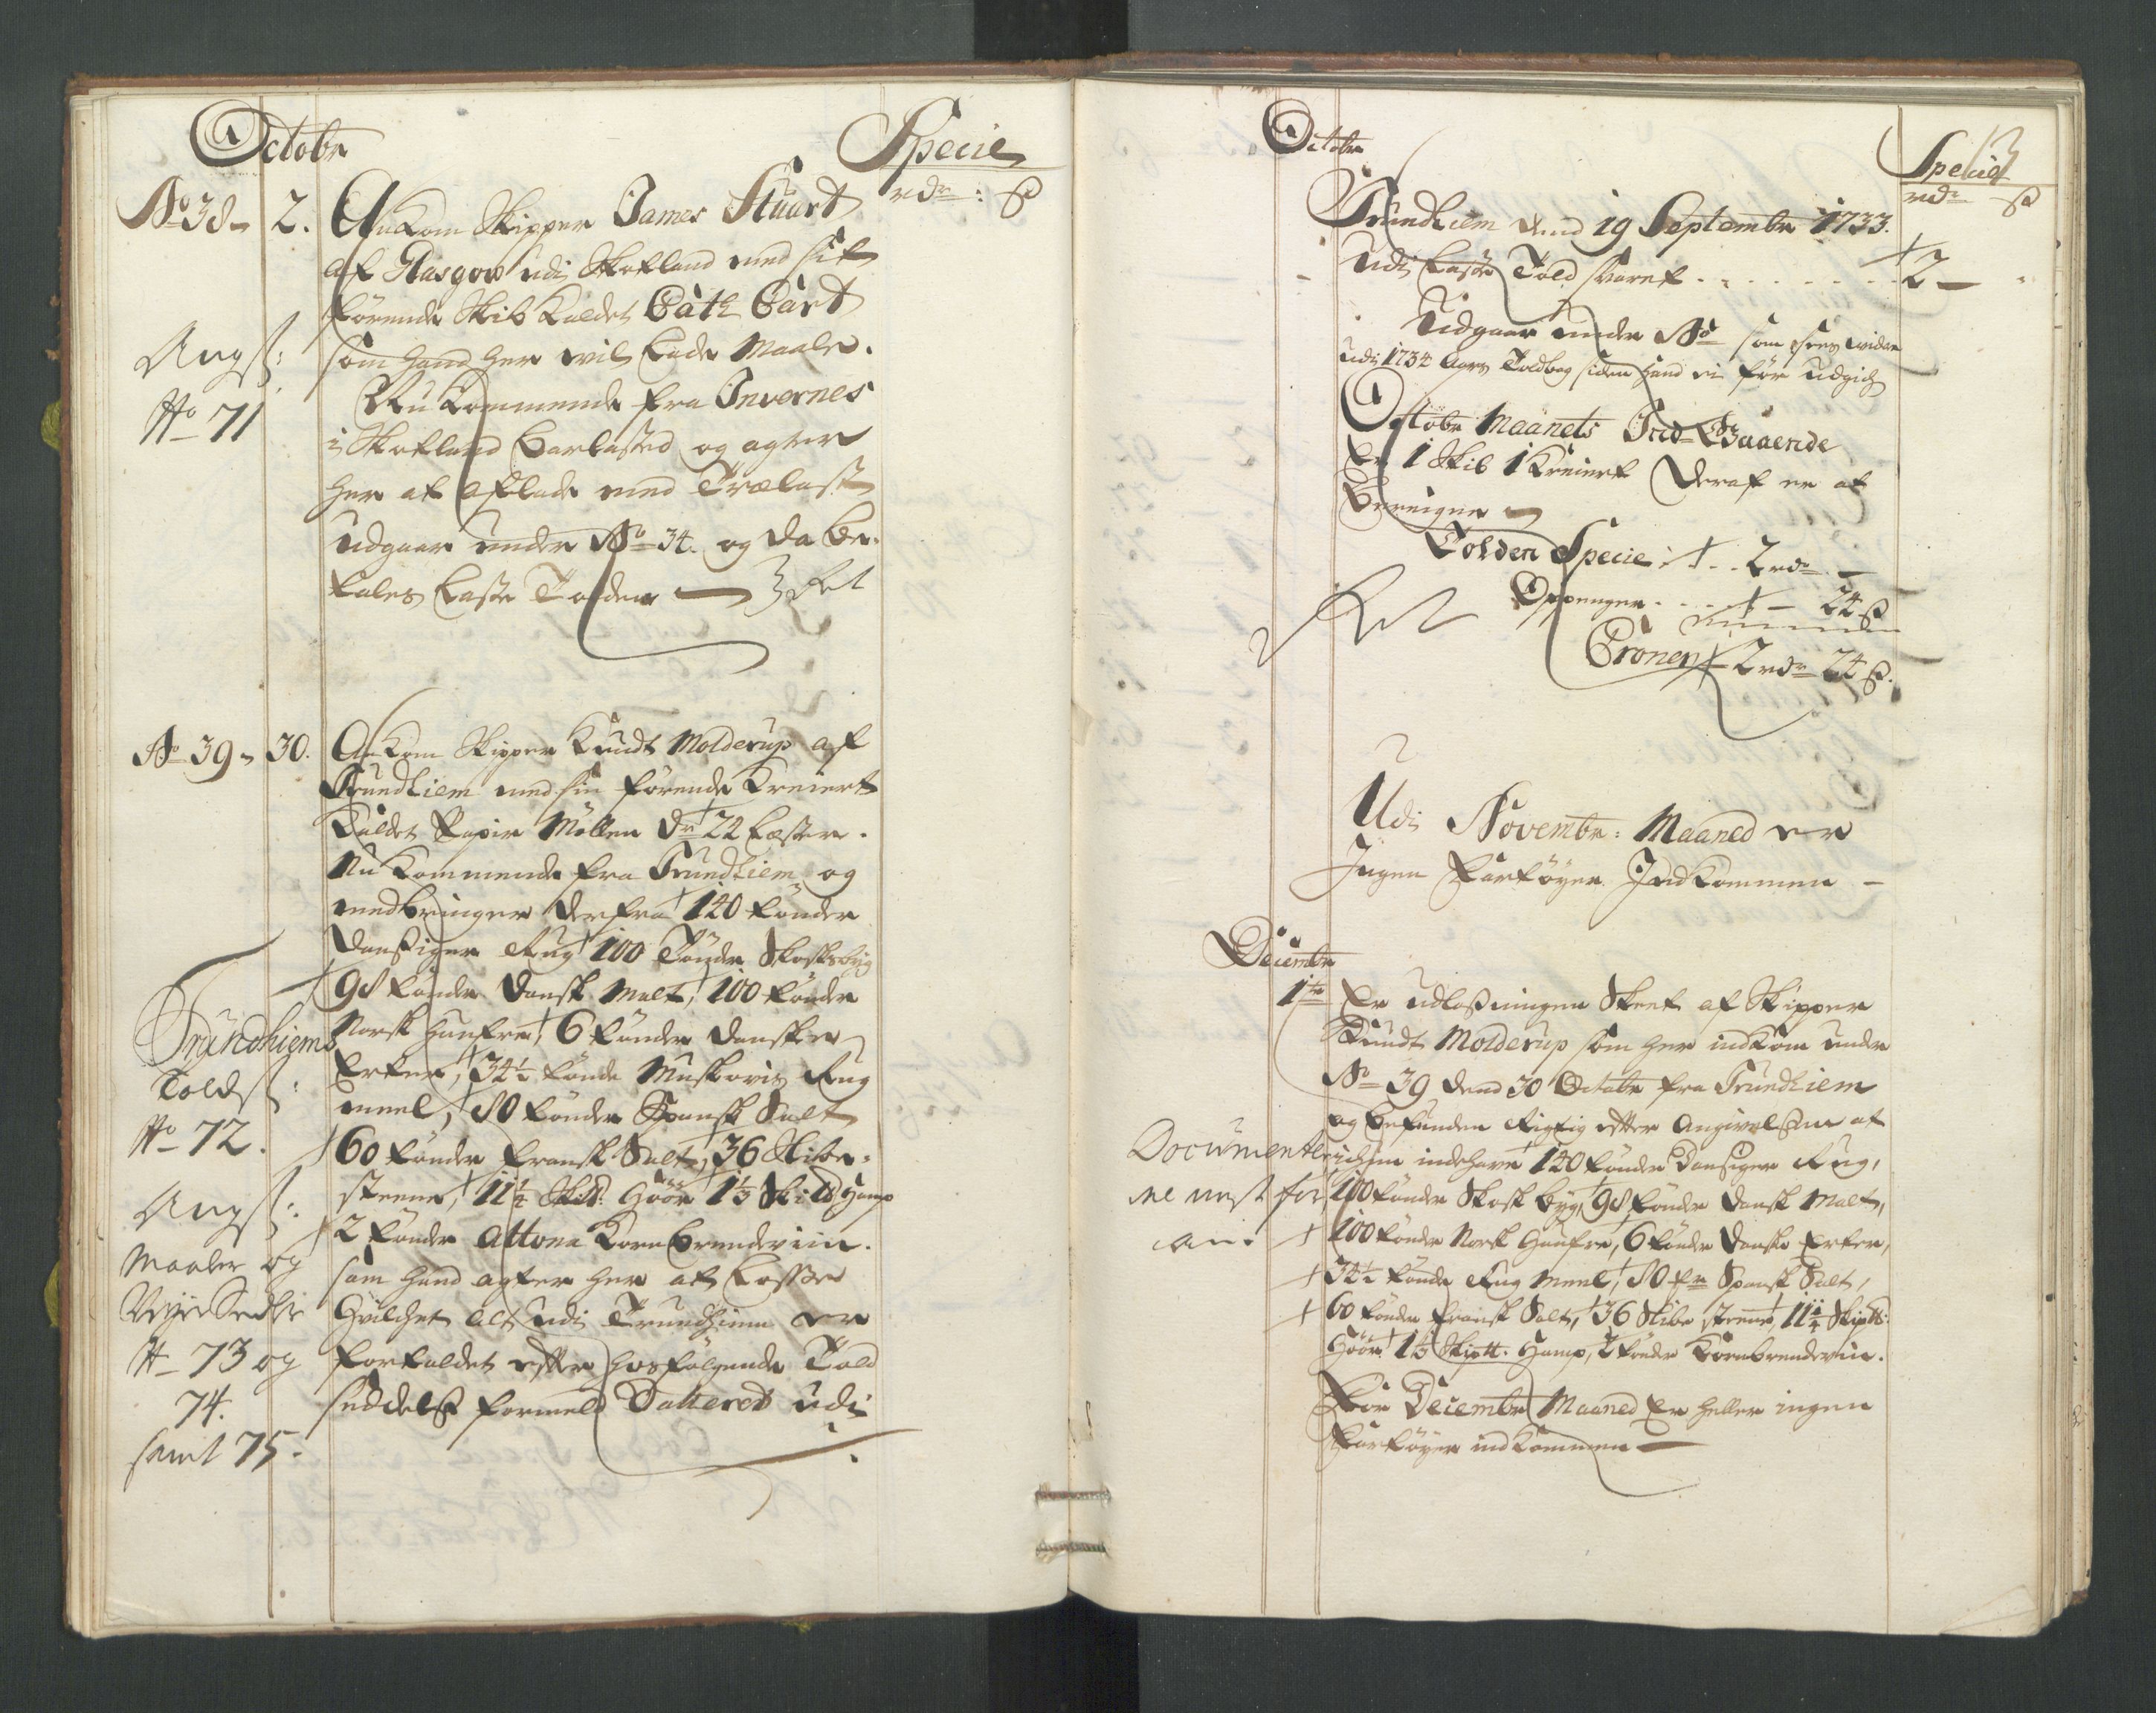 Octobr
Specie
rdr : ß
No 38 - 2. Ankom Skipper James Stuart
af Glasgow udi Skotland med sit
førende Skib kaldet Cath Cart
som hand her vil lade Maale.
Angs:
No 71
Nu kommende fra Invernes
i Skotland barlasted og agter
her at aflade med Trælast
udgaar under No 34. og da be-
tales Læste Tolden —
No 39 - 30. Ankom Skipper Knudt Molderup af
Trundhiem med sin førende Kreiert
kaldet Papir Möllen dr 22 Læster.
Nu kommende fra Trundhiem og
medbringer derfra 140 tønder
Danssiger Rug 100 Tønder Skotsbyg
98 tønder Dansk Malt, 100 tønder
Norsk Hanfre, 6 tønder Danske
Erter, 34½ tønde Muskovis Rug
meel, 80 tønder Spansk Salt
60 tønder fransk Salt, 36 Slibe-
steene, 11¼ Skll. Høör 1⅓ Skll Hamp
2 tønder Altona Korn brendeviin.
som hand agter her at losse
hvilchet alt udi Trundhiem er
fortoldet efter hosfølgende Told
seddels formeld Datteret udi
Trundhiems
Tolds:
No 72.
Angs:
Maaler og
Veyer Sedle
No 73 og
74.
samt 75.
Octobr
13
Specie
rdr ß
Trundhiem dend 19 Septembr 1733.
udi Læste Told svaret . . . . . . . 2 —
Udgaar under No som sees videre
udi 1734 Aars Toldbog siden hand ei før udgich
Octobr Maanets Ind Gaaende
Er 1 Skib 1 Kreiert deraf er at
bereigne —
Tolden Specie . . 2 rdr —
Oppenger . . . — 24 ß
Cronen 2 rdr 24 ß.
Udi Novembr: Maaned er
Ingen Fartøyer Ind kommen —
Decembr
1te Er udlosningen Skeet af Skipper
Knudt Molderup som her indkom under
No 39 dend 30 Octobr fra Trundhiem
og befunden Rigtig efter Angivelsen at
indehave 140 tønder Dansiger Rug,
100 tønder Skotsk byg, 98 tønder Dansk Malt,
100 tønder Norsk Hanfre, 6 tønder Danske Erter,
34½ tønde Rug Meel, 80 tr Spansk Salt,
60 tønder fransk Salt, 36 Slibe steene, 11¼ Skipll:
Høör 1⅓ Skipll. Hamp, 2 tønder Kornbrendeviin.
Documenter
ne nest for
an.
For Decembr Maaned Er heller ingen
Fartøyer indkommen —